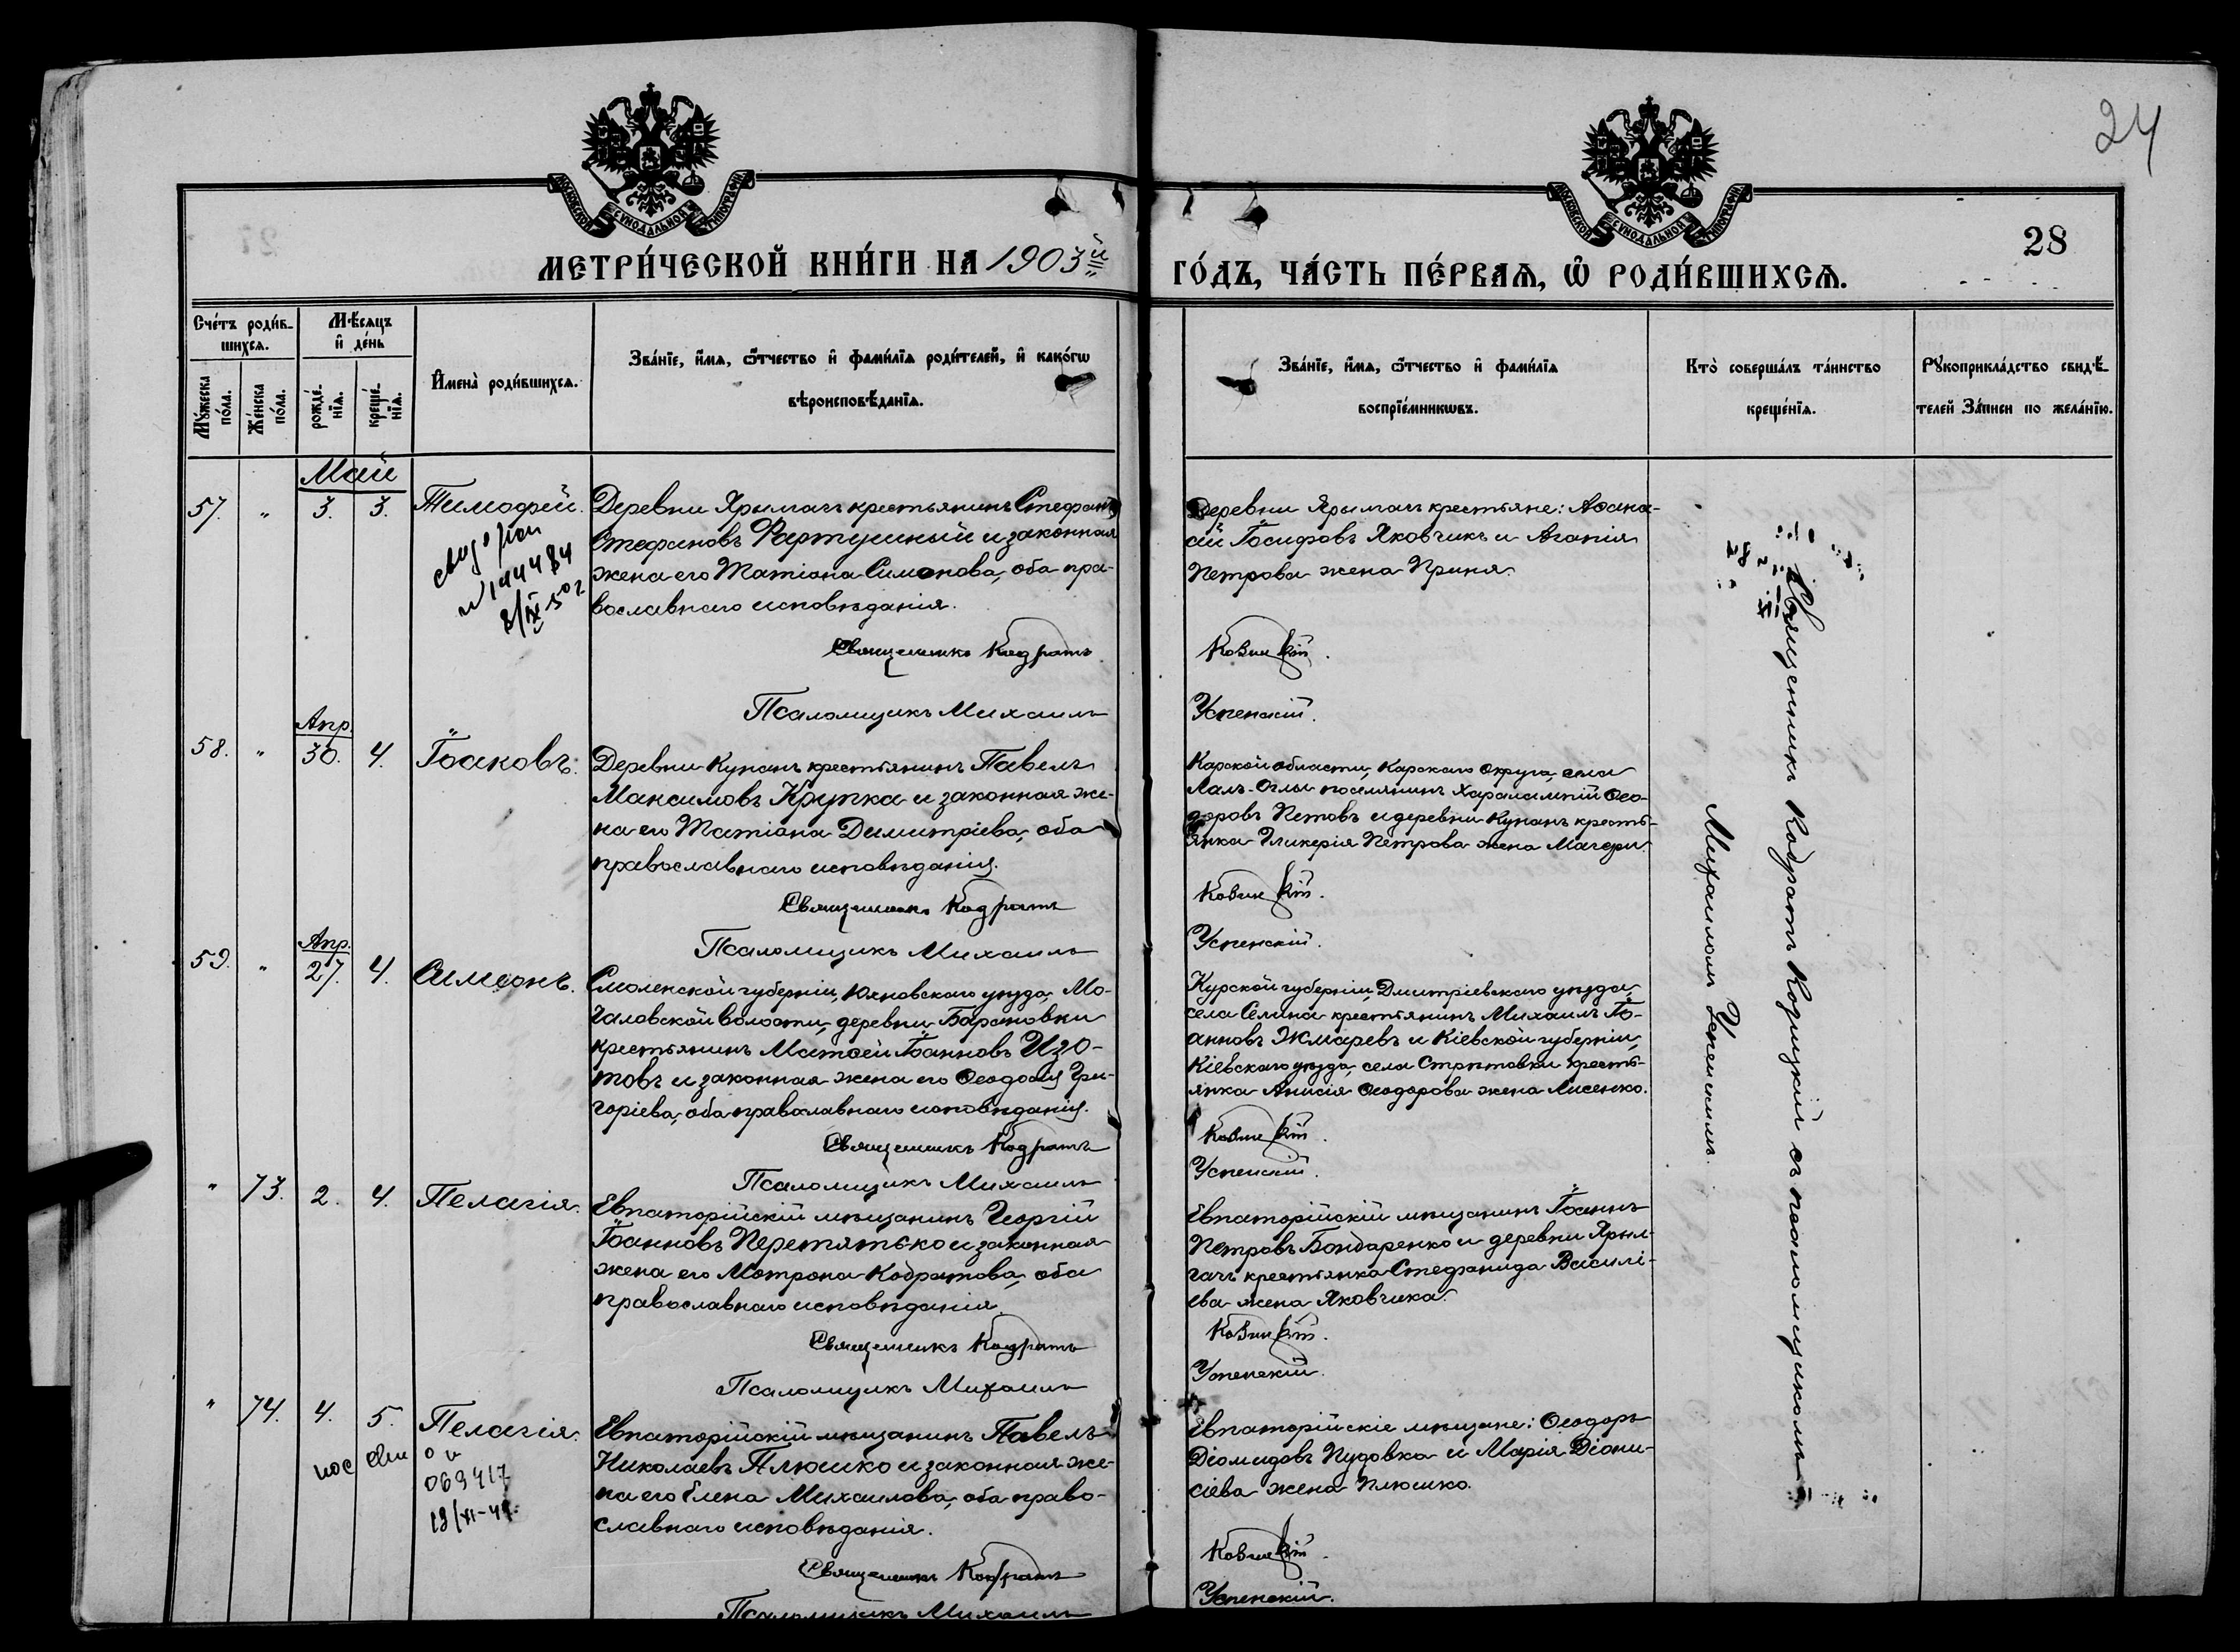 24
28
МОСКОВСКОЙ СѴНОДАЛЬНОЙ ТИПОГРАФІИ
МОСКОВСКОЙ СѴНОДАЛЬНОЙ ТИПОГРАФІИ
МЕТРИ́ЧЕСКОЙ КНИ́ГИ НА 1903й
ГО́ДЪ, ЧА́СТЬ ПЕ́РВАѦ, Ѡ҆ РОДИ́ВШИХСѦ.
Сче́тъ роди́в-
шихсѧ.
Мѣ́сѧцъ
и҆ де́нь
Мꙋ́жеска
по́ла.
Же́нска
по́ла.
рожде́-
нїѧ.
креще́-
нїѧ.
И҆мена̀ роди́вшихсѧ.
Зва́нїе, и҆́мѧ, ѻ҆́тчество и҆ фами́лїѧ роди́телей, и҆ како́гѡ
вѣроисповѣ́данїѧ.
Зва́нїе, и҆́мѧ, ѻ҆́тчество и҆ фами́лїѧ
воспрїе́мникѡвъ.
Кто̀ соверша́лъ та́инство
креще́нїѧ.
Рꙋкоприкла́дство свидѣ́-
телей За́писи по жела́нїю.
Май
57. " 3. 3. Тимофей.
Деревни Ярылгачъ крестьянинъ Стефанъ
Стефановъ Фартушный и законная
жена его Татіана Симонова, оба пра-
вославнаго исповѣданія.
Священникъ Кодратъ
Псаломщикъ Михаилъ
Деревни Ярылгачъ крестьяне: Аѳана-
сій Іосифовъ Яковчикъ и Агапія
Петрова жена
Успенскій.
№ 144484
8/IX 50г
Апр.
58. " 30. 4. Іоаковъ.
Деревни Кунанъ крестьянинъ Павелъ
Максимовъ Крупка и законная же-
на его Татіана Димитріева, оба
православнаго исповѣданія.
Священникъ Кодратъ
Псаломщикъ Михаилъ
Карской области, Карскаго Округа, села
Лалъ-Оглы поселянинъ Харалампій Ѳео-
доровъ Петовъ и деревни Кунанъ кресть-
янка Гликерія Петрова жена
Успенскій.
Апр.
59. " 27. 4. Симеонъ.
Смоленской губерніи, Юхновскаго уѣзда, Мо-
чаловской волости, деревни Барановки
крестьянинъ Матѳей Іоанновъ Изо-
товъ и законная жена его Ѳеодосія Гри-
горіева, оба православнаго исповѣданія.
Священникъ Кодратъ
Псаломщикъ Михаилъ
Курской губерніи, Дмитріевскаго уѣзда,
села Селина крестьянинъ Михаилъ Іо-
анновъ Жмаревъ и Кіевской губерніи,
Кіевскаго уѣзда, села Стрѣтовки кресть-
янка Анисія Ѳеодорова жена Лисенко.
Успенскій.
" 73. 2. 4. Пелагія.
Евпаторійскій мѣщанинъ Георгій
Іоанновъ Перетятько и законная
жена его Мотрона Кодратова, оба
православнаго исповѣданія.
Священникъ Кодратъ
Псаломщикъ Михаилъ
Евпаторійскій мѣщанинъ Іоаннъ
Петровъ Бондаренко и деревни Ярыл-
гачъ крестьянка Стефанида Василі-
ева жена Яковчика.
Успенскій.
" 74. 4. 5. Пелагія.
Евпаторійскій мѣщанинъ Павелъ
Николаевъ Плюшко и законная же-
на его Елена Михаилова, оба право-
славнаго исповѣданія.
Священникъ Кодратъ
Псаломщикъ Михаилъ
Евпаторійскіе мѣщане: Ѳеодоръ
Діомидовъ Пудовка и Марія Діони-
сіева жена Плюшко.
Успенскій.
069417
Священникъ Кодратъ съ псаломщикомъ
Михаиломъ Успенскимъ.